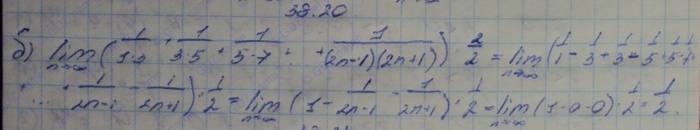 38.20
б) lim n→∞ (1/1·3 + 1/3·5 + 1/5·7 + ... + 1/(2n-1)(2n+1)) · 2/2 = lim n→∞ (1/1 - 1/3 + 1/3 - 1/5 + 1/5 - 1/7 +
+ ... + 1/2n-1 - 1/2n+1) · 1/2 = lim n→∞ (1 - 1/2n-1 - 1/2n+1) · 1/2 = lim n→∞ (1-0-0) · 1/2 = 1/2.